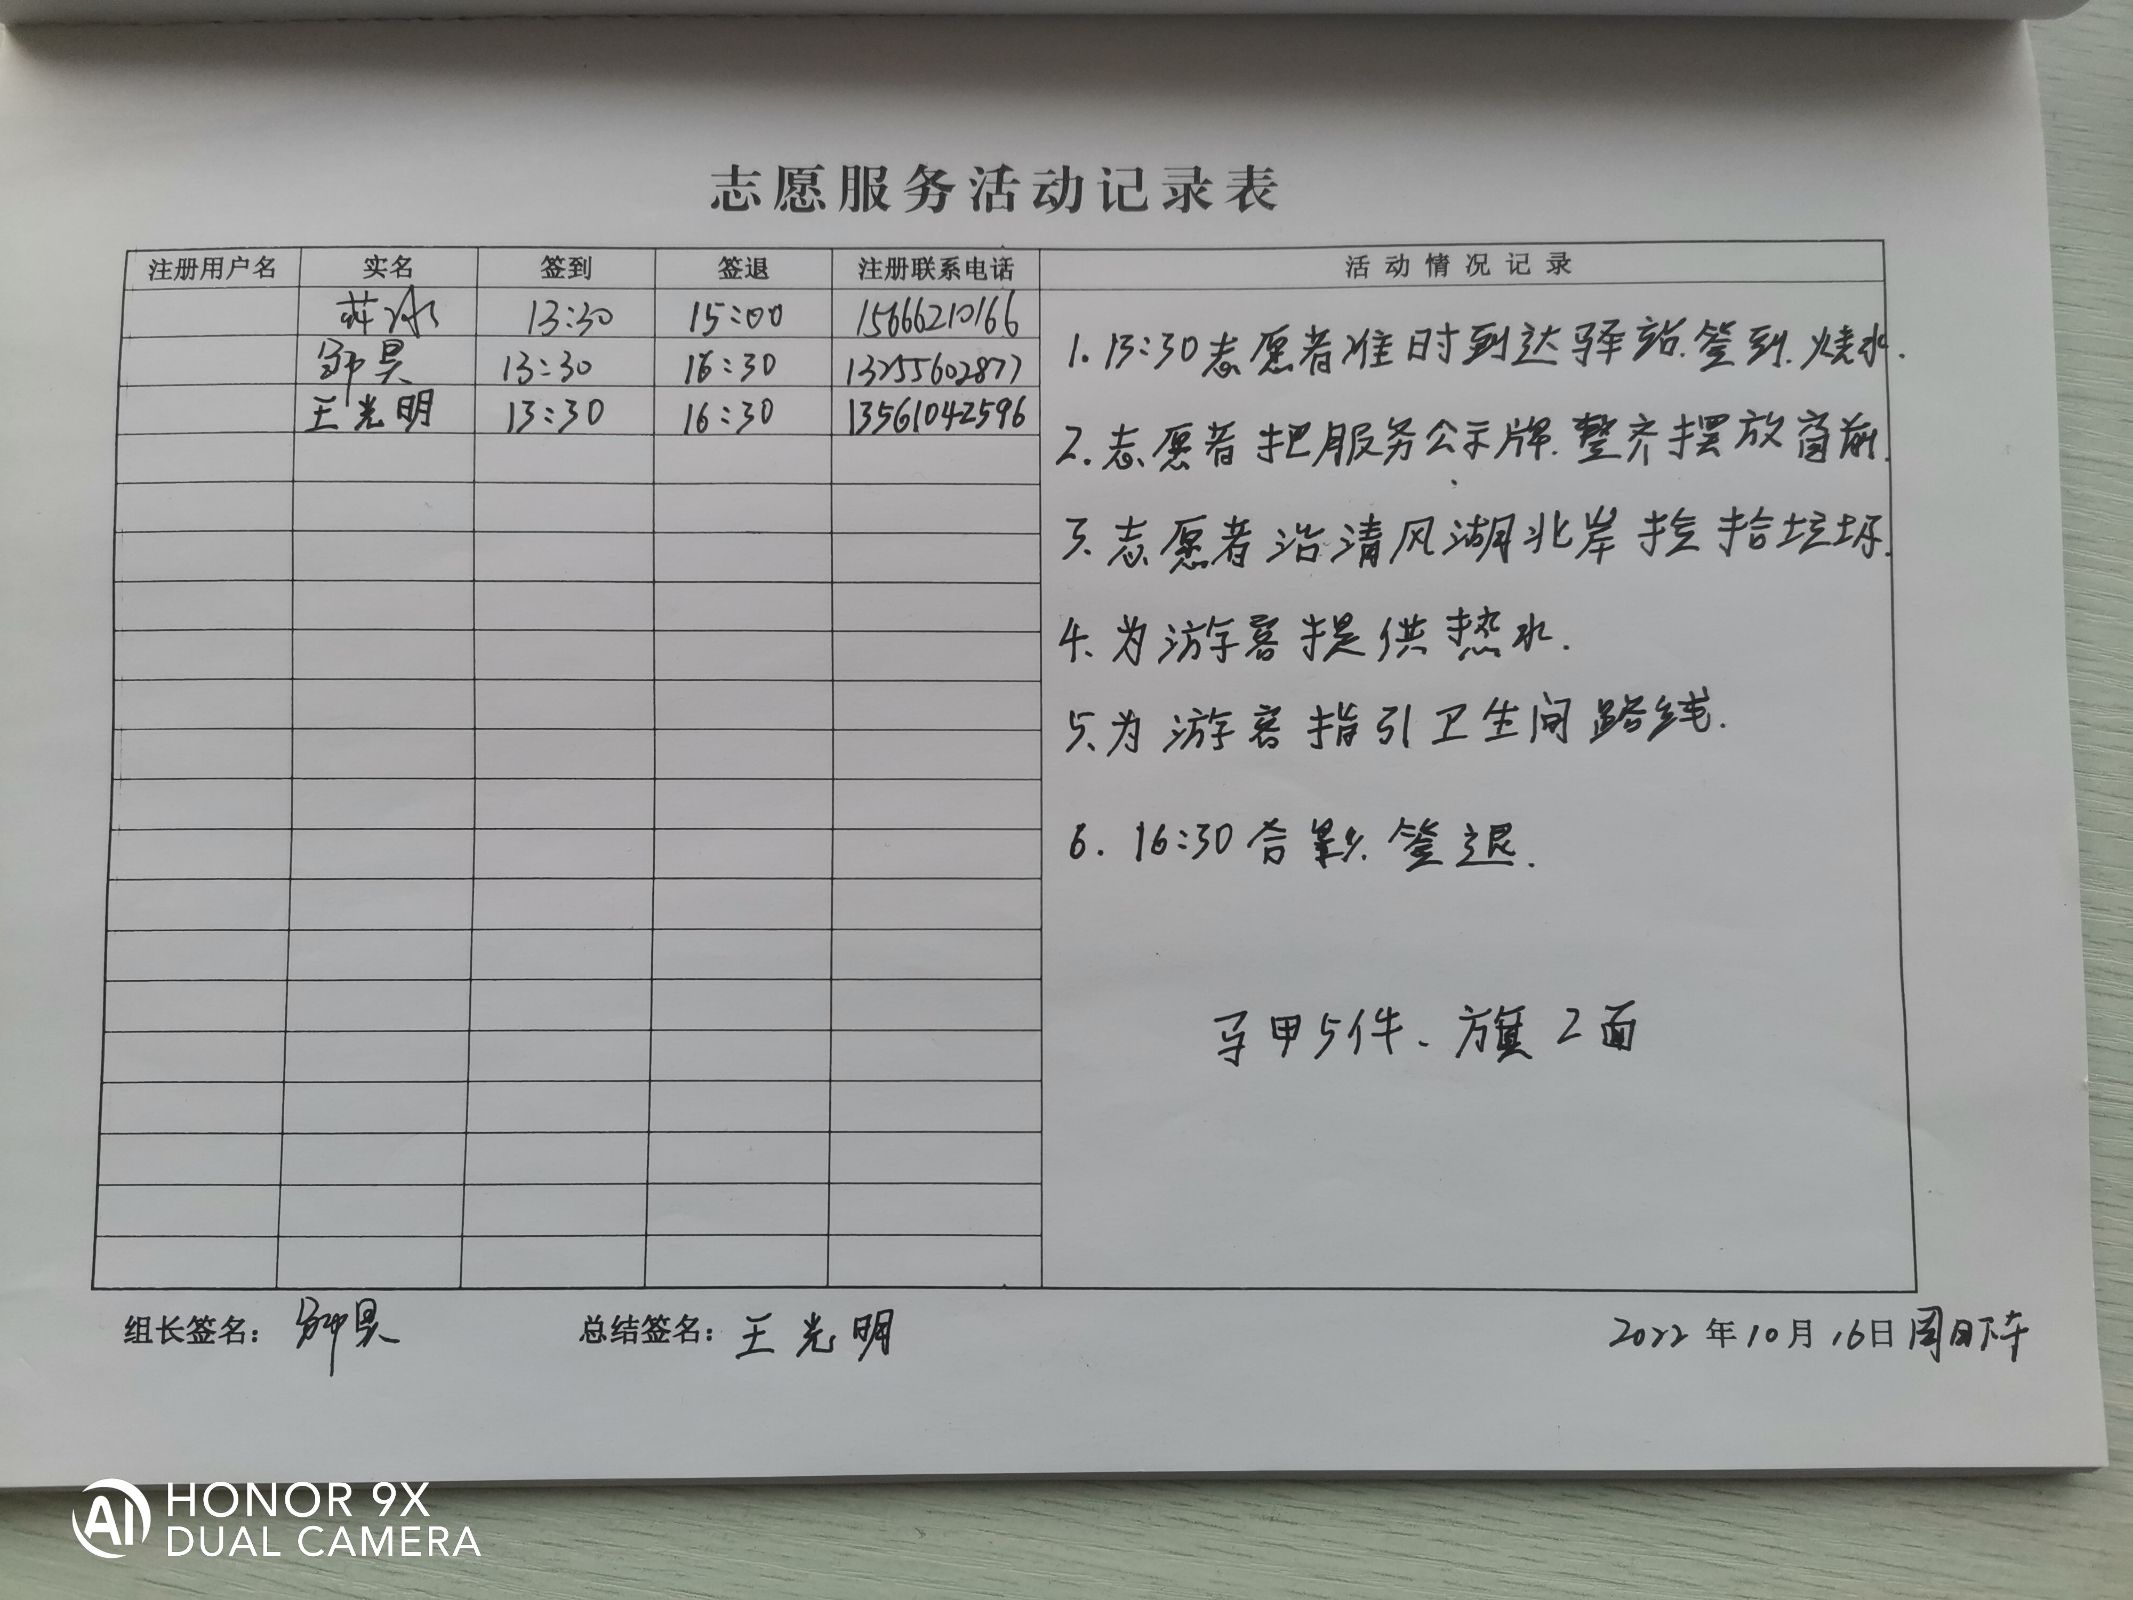 志愿服务活动记录表
注册用户名 实名 签到 签退 注册联系电话 活动情况记录
13:30 15:00 15666210166
昊 13:30 16:30 13255602877
王光明 13:30 16:30 13561042596
1. 13:30志愿者准时到达驿站.签到.烧水.
2. 志愿者把服务公示牌.整齐摆放窗前.
3、志愿者沿清风湖北岸捡拾垃圾.
4、为游客提供热水.
5、为游客指引卫生间路线.
6. 16:30合影.签退.
马甲5件、旗2面
组长签名: 昊 总结签名: 王光明 2022年10月16日周日下午
HONOR 9X
DUAL CAMERA